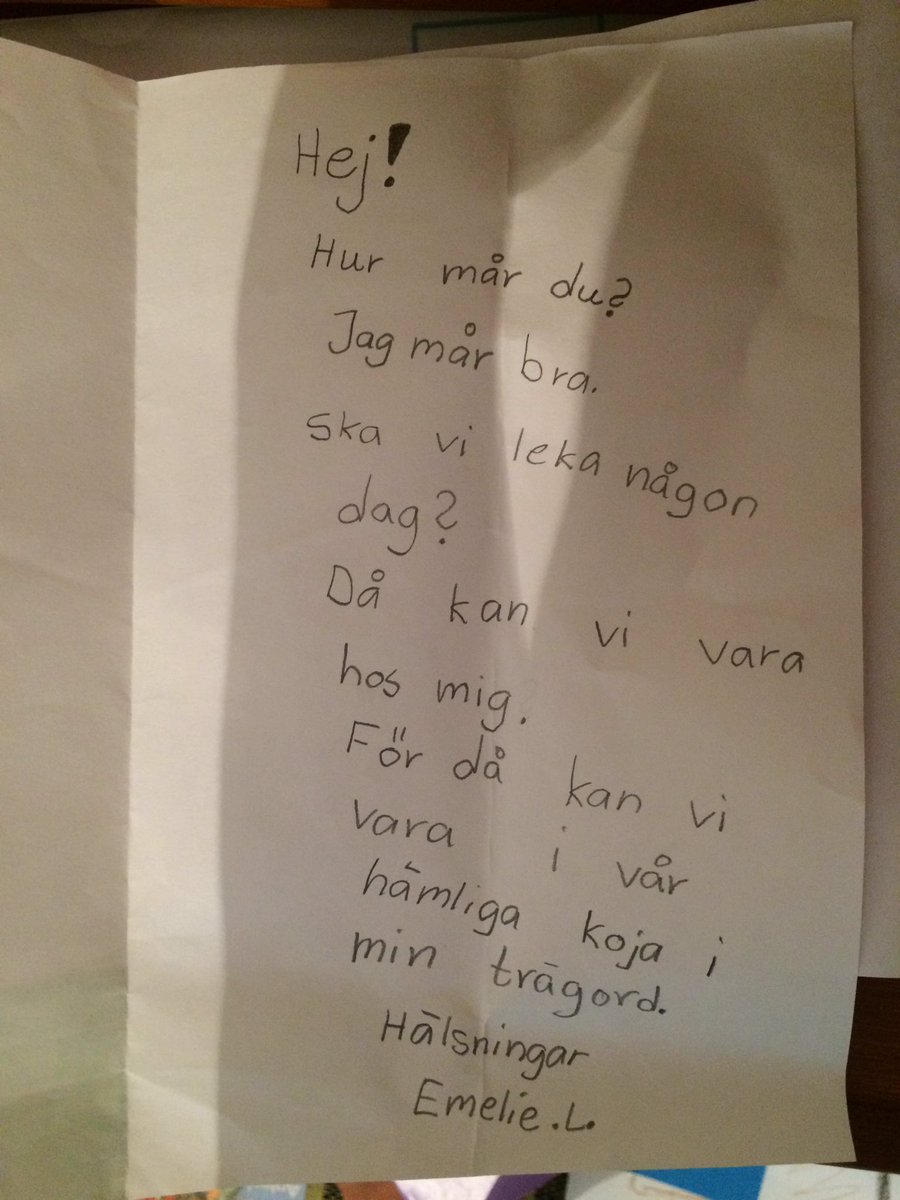 Hej!
Hur mår du?
Jag mår bra.
ska vi leka någon
dag?
Då kan vi vara
hos mig.
För då kan vi
vara i vår
hämliga koja i
min trägord.
Hälsningar
Emelie.L.